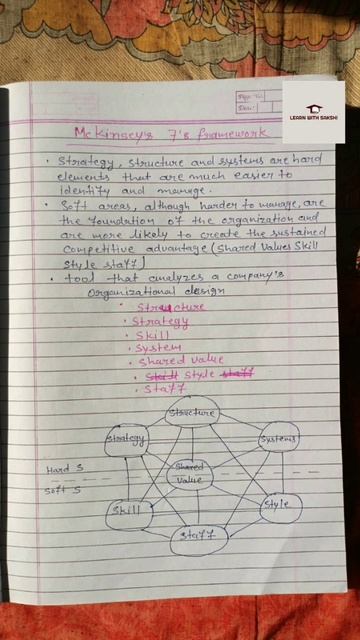 Page No.
Date:
LEARN WITH SAKSHI
McKinsey's 7's framework
• Strategy, Structure and systems are hard
elements that are much easier to
identify and manage.
• Soft areas, although harder to manage, are
the foundation of the organization and
are more likely to create the sustained
competitive advantage (Shared Values Skill
Style staff)
• tool that analyzes a company's
Organizational design
• Structure
• Strategy
• Skill
• System
• Shared value
• Skill Style staff
• Staff
Structure
Strategy
Systems
Hard S
Shared
Value
Soft S
Skill
Style
Staff